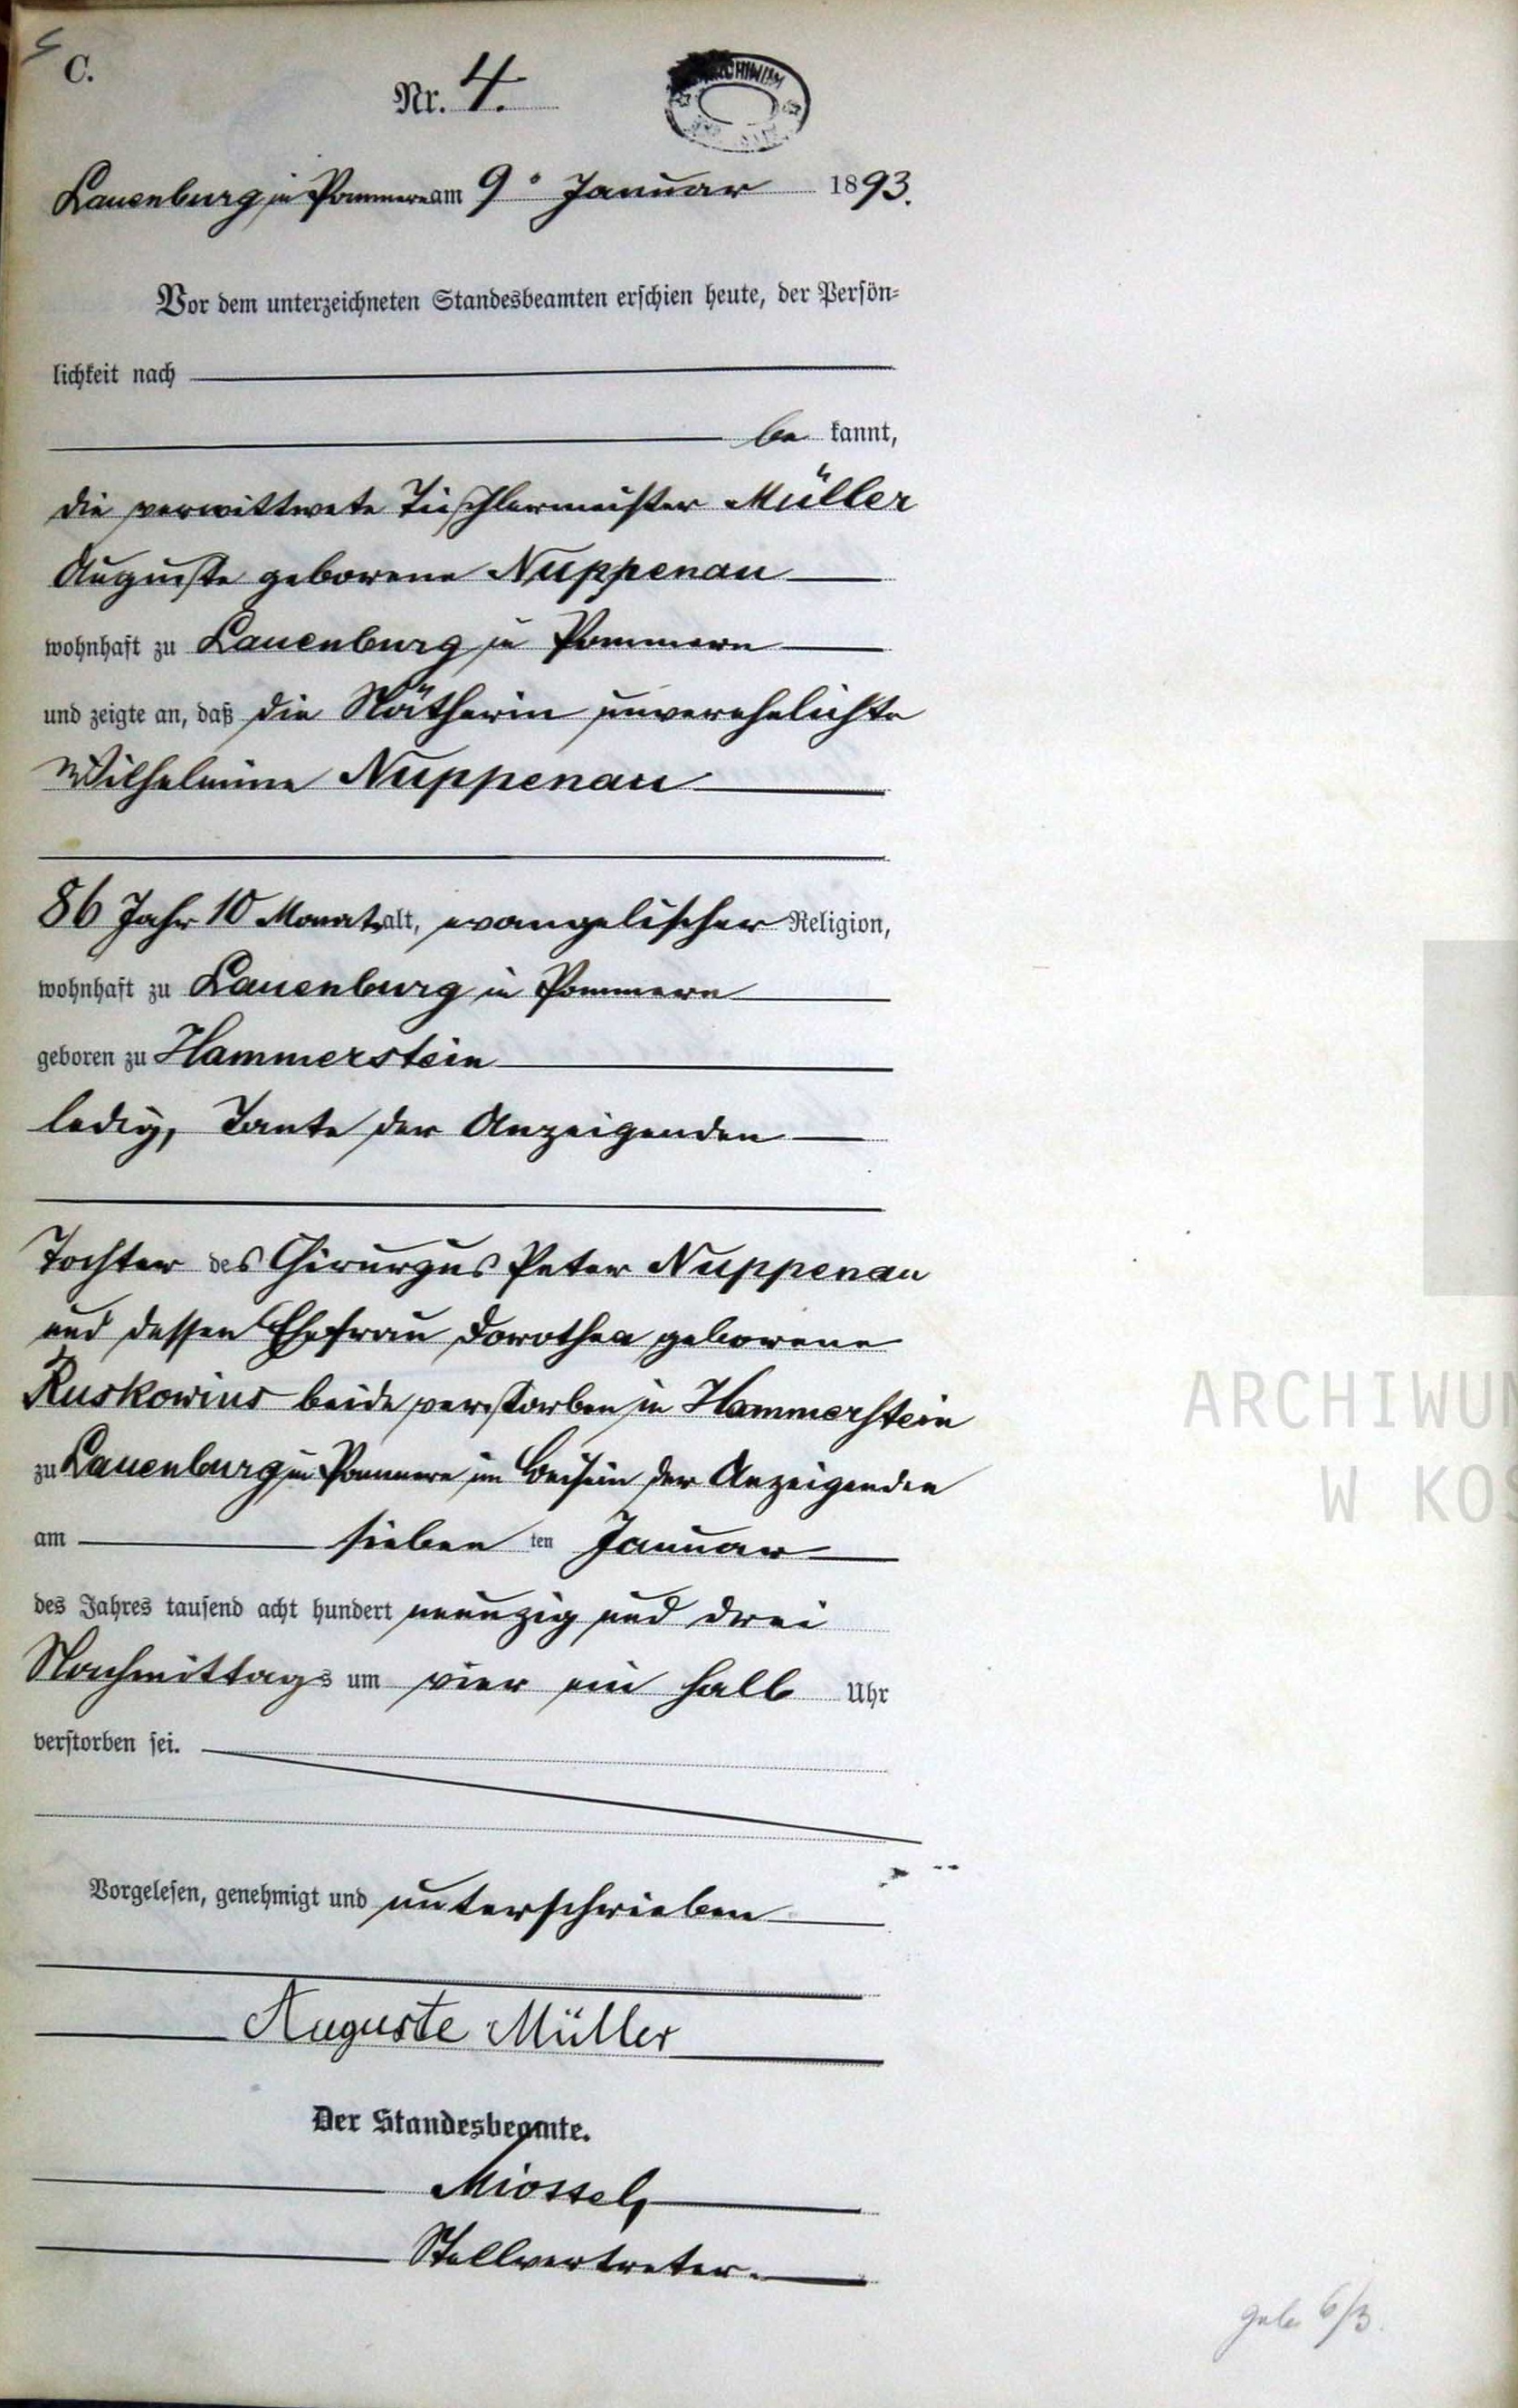 C.
Nr. 4.
ARCHIWUM
Lauenburg in Pommern am 9. Januar 1893.
Vor dem unterzeichneten Standesbeamten erschien heute, der Persön-
lichkeit nach
be kannt,
die verwittwete Tischlermeister Müller
Auguste geborene Nuppenau
wohnhaft zu Lauenburg in Pommern
und zeigte an, daß die Nätherin unverehelichte
Wilhelmine Nuppenau
86 Jahr 10 Monat alt, evangelischer Religion,
wohnhaft zu Lauenburg in Pommern
geboren zu Hammerstein
ledig, Tante der Anzeigenden
Tochter des Chirurgus Peter Nuppenau
und dessen Ehefrau Dorothea geborene
Ruskowius beide verstorben in Hammerstein
zu Lauenburg in Pommern im Beisein der Anzeigenden
am sieben ten Januar
des Jahres tausend acht hundert neunzig und drei
Nachmittags um vier ein halb Uhr
verstorben sei.
Vorgelesen, genehmigt und unterschrieben
Auguste Müller
Der Standesbeamte.
Miossel,
Stellvertreter.
ARCHIWUM
W KOS
6/3.